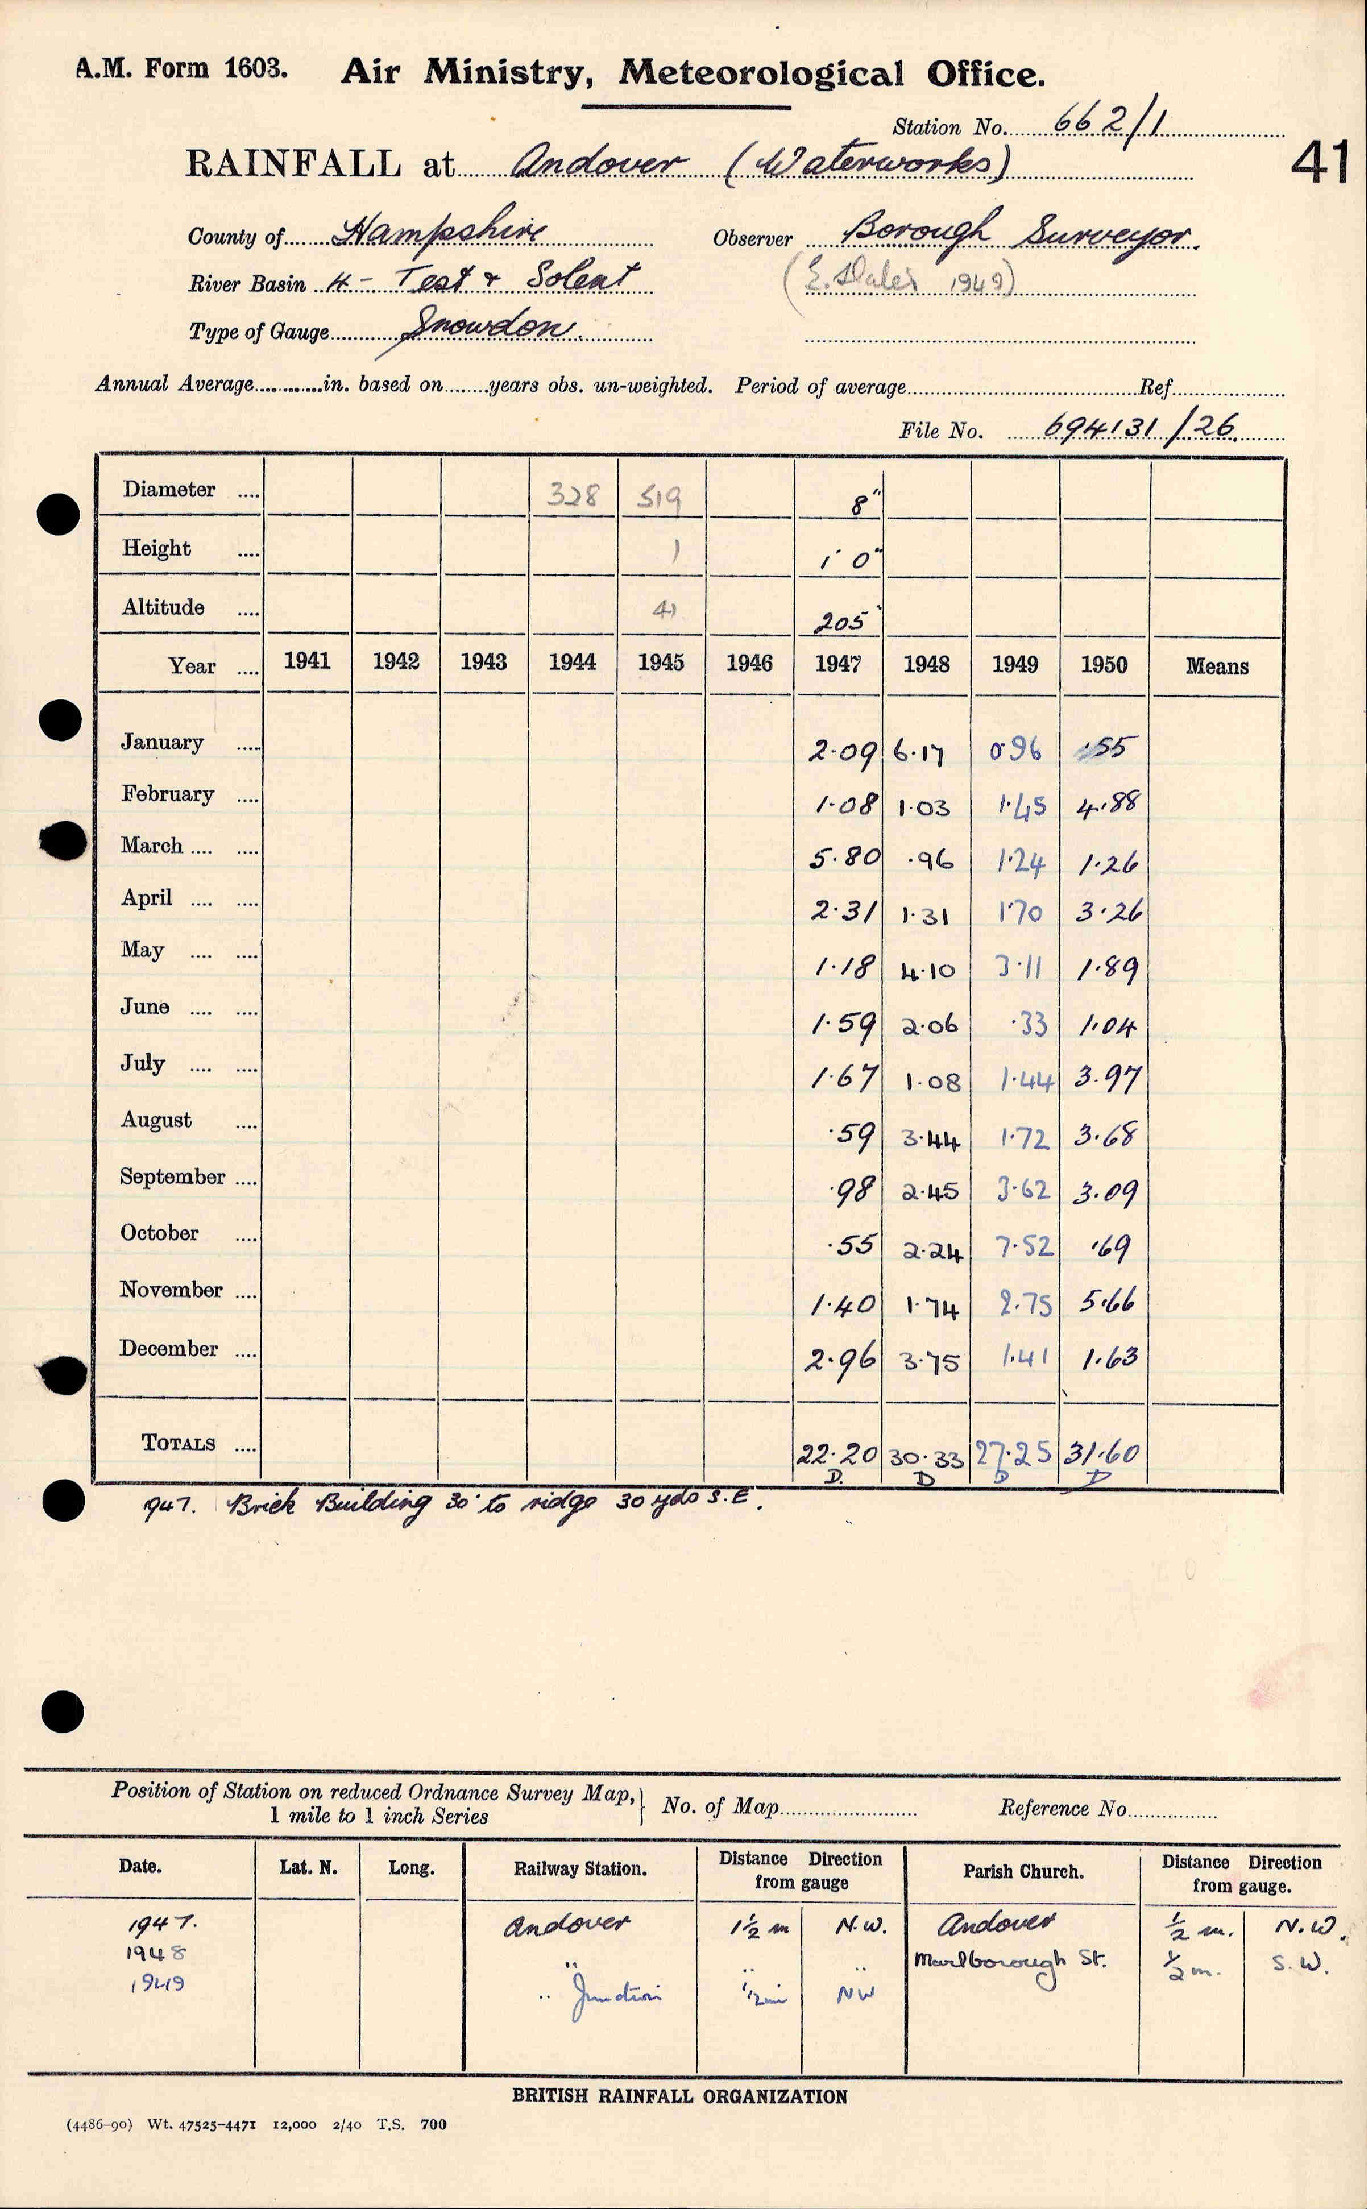 A.M. Form 1603. Air Ministry, Meteorological Office.
Station No. 662/1
RAINFALL at Andover (Waterworks) 41
County of Hampshire Observer Borough Surveyor.
River Basin 4 - Test & Solent (E. Dales 1949)
Type of Gauge Snowdon.
Annual Average............in. based on.......years obs. un-weighted. Period of average.......... Ref..........
File No. 694131/26.
Diameter .... 328 519 8"
Height .... 1 1' 0"
Altitude .... 41 205'
Year .... 1941 1942 1943 1944 1945 1946 1947 1948 1949 1950 Means
January .... 2.09 6.17 0.96 .55
February .... 1.08 1.03 1.45 4.88
March .... .... 5.80 .96 1.24 1.26
April .... .... 2.31 1.31 1.70 3.26
May .... .... 1.18 4.10 3.11 1.89
June .... .... 1.59 2.06 .33 1.04
July .... .... 1.67 1.08 1.44 3.97
August .... .59 3.44 1.72 3.68
September .... .98 2.45 3.62 3.09
October .... .55 2.24 7.52 .69
November .... 1.40 1.74 2.75 5.66
December .... 2.96 3.75 1.41 1.63
TOTALS .... 22.20 30.33 27.25 31.60
D. D D D
1947. Brick Building 30' to ridge 30 yds S.E.
Position of Station on reduced Ordnance Survey Map, } No. of Map.......... Reference No..........
1 mile to 1 inch Series
Date. Lat. N. Long. Railway Station. Distance Direction from gauge Parish Church. Distance Direction from gauge.
1947. Andover 1½ m N.W. Andover ½ m. N.W.
1948 " " " Marlborough St. ½ m. S.W.
1949 " Junction 1/2 mi NW
BRITISH RAINFALL ORGANIZATION
(4486-90) Wt. 47525-4471 12,000 2/40 T.S. 700